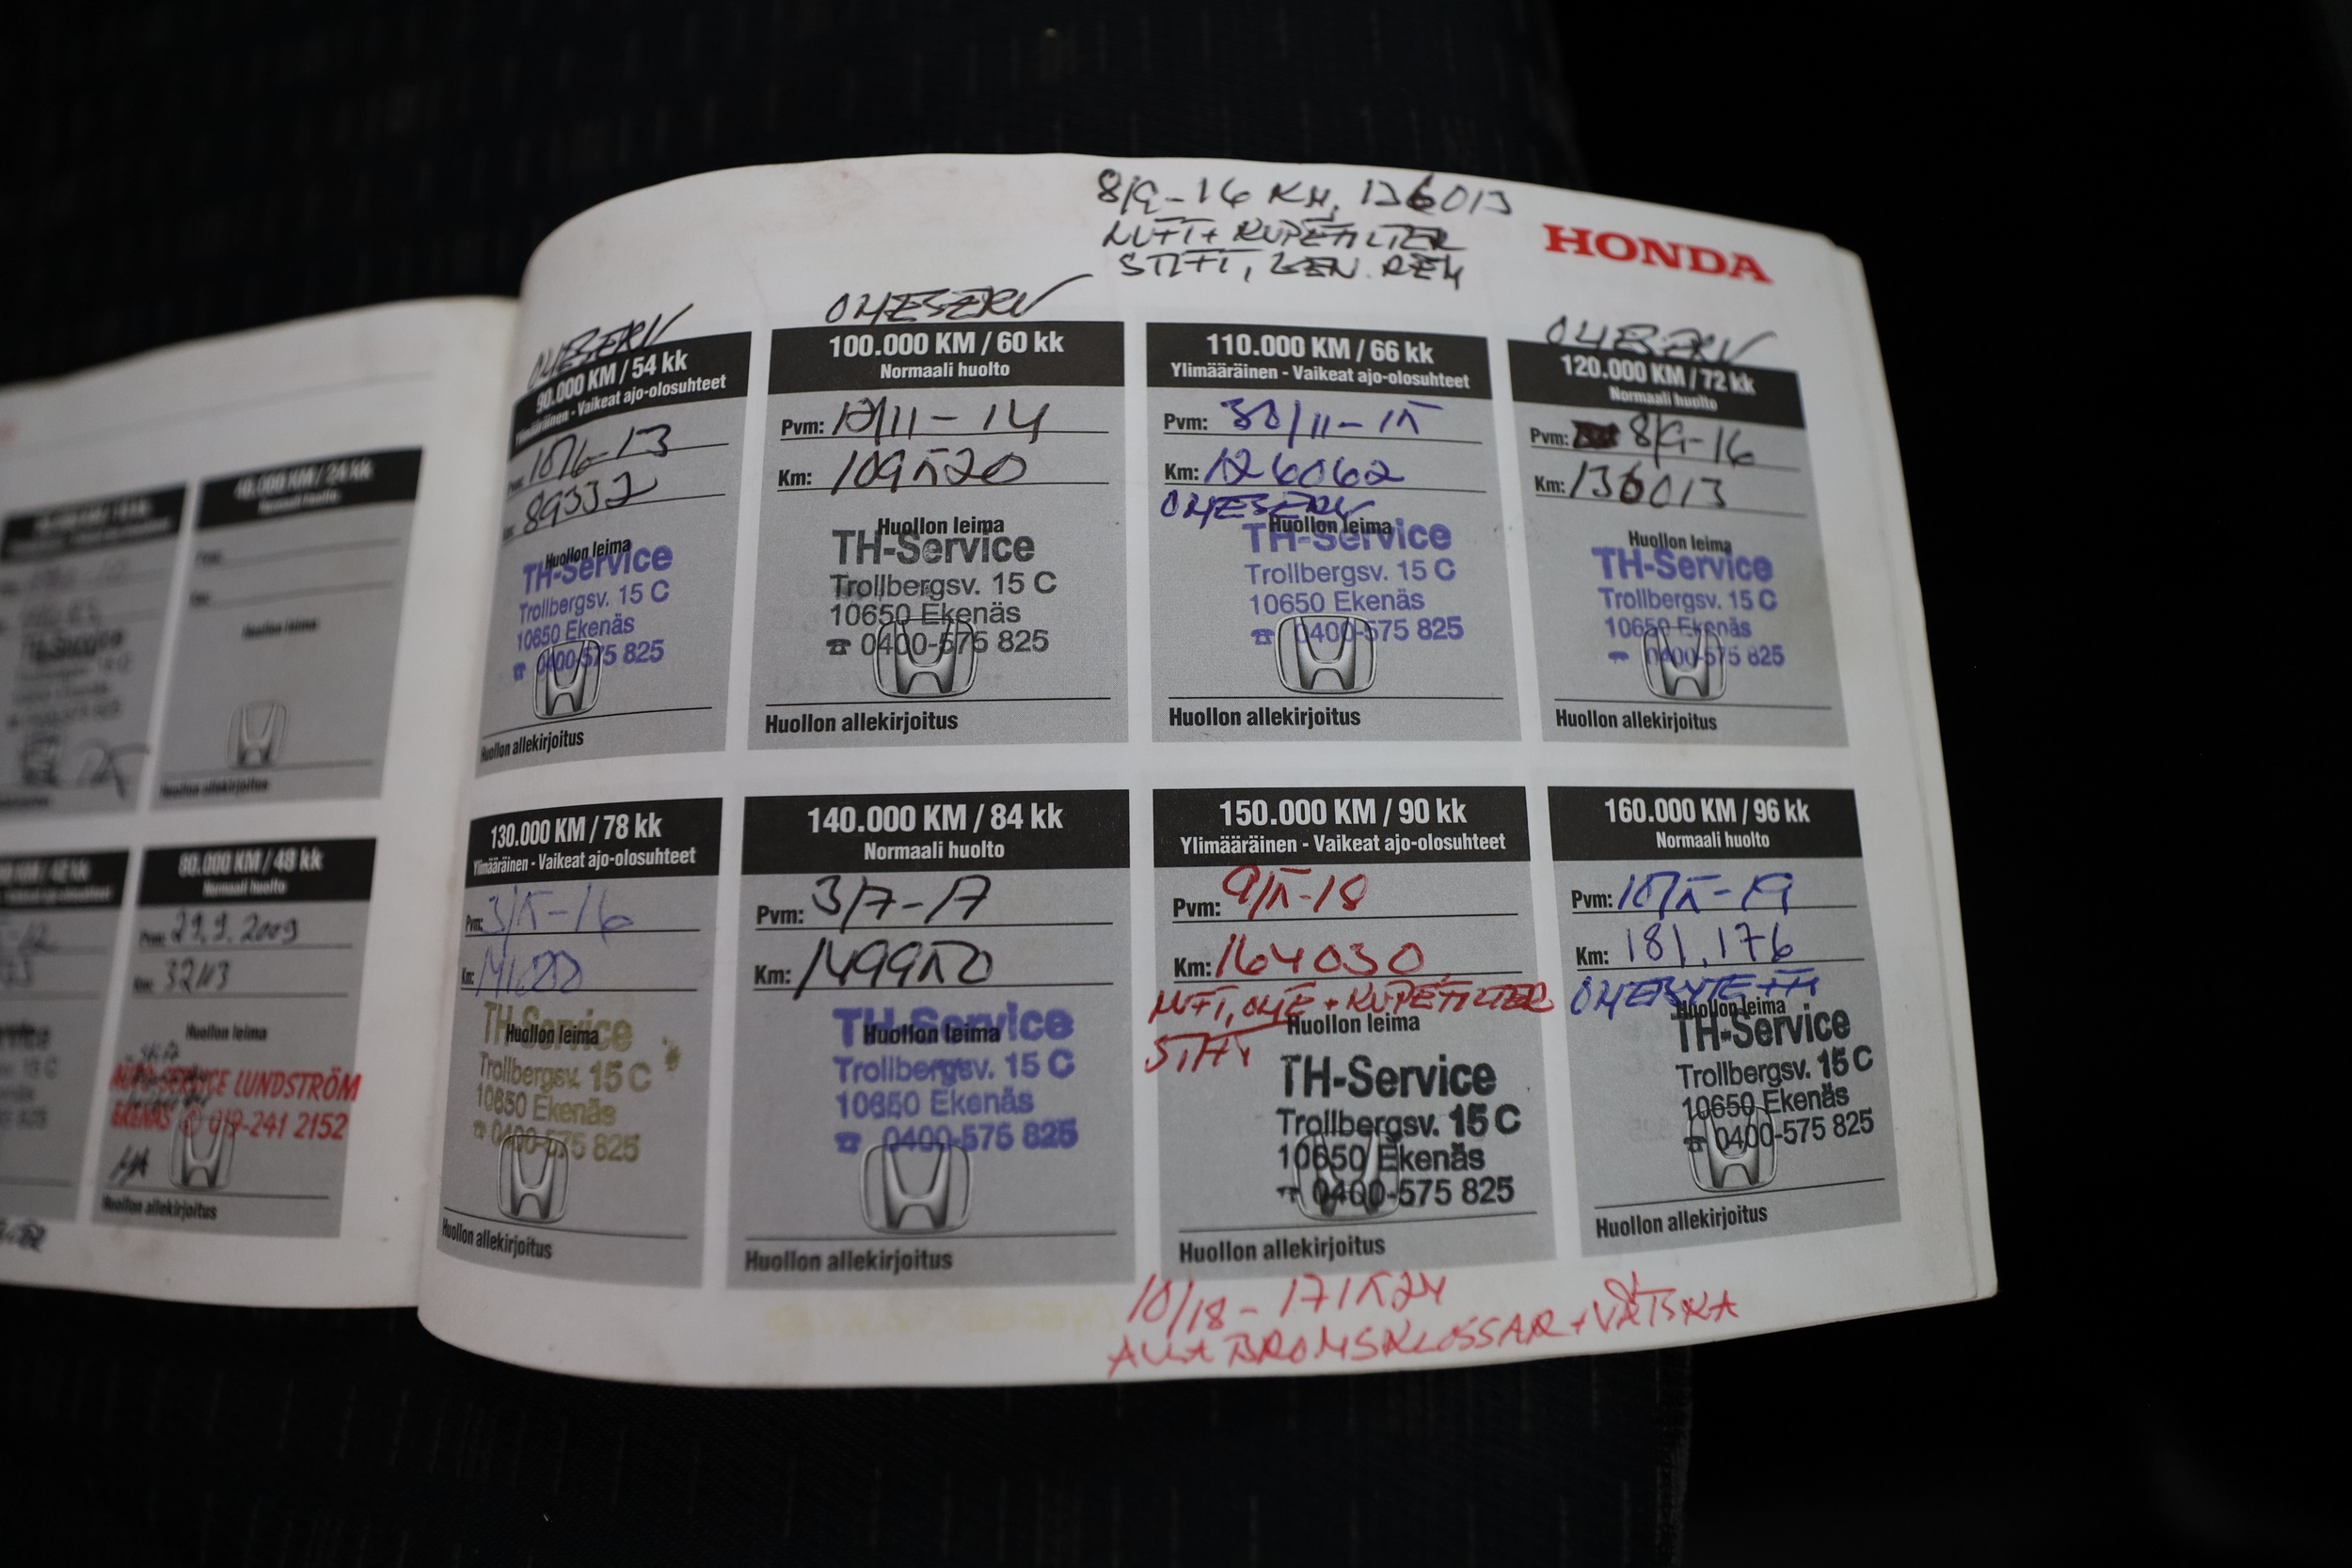 40.000 KM / 24 kk
Normaali huolto
Huollon leima
Huollon allekirjoitus
80.000 KM / 48 kk
Normaali huolto
Pvm: 29.9.2009
Km: 32113
Huollon leima
AUTO-SERVICE LUNDSTRÖM
EKENÄS ✆ 019-241 2152
Huollon allekirjoitus
8/9-16 KM. 136013
LUFT + KUPEFILTER
STIFT, GEN. REM
HONDA
OLJESERV
90.000 KM / 54 kk
Ylimääräinen - Vaikeat ajo-olosuhteet
89332
Huollon leima
TH-Service
Trollbergsv. 15 C
10650 Ekenäs
☎ 0400-575 825
Huollon allekirjoitus
OLJESERV
100.000 KM / 60 kk
Normaali huolto
Pvm: 12/11-14
Km: 109520
Huollon leima
TH-Service
Trollbergsv. 15 C
10650 Ekenäs
☎ 0400-575 825
Huollon allekirjoitus
110.000 KM / 66 kk
Ylimääräinen - Vaikeat ajo-olosuhteet
Pvm: 30/11-15
Km: 126062
OLJESERV
Huollon leima
TH-Service
Trollbergsv. 15 C
10650 Ekenäs
☎ 0400-575 825
Huollon allekirjoitus
OLJESERV
120.000 KM / 72 kk
Normaali huolto
Pvm: 8/9-16
Km: 136013
Huollon leima
TH-Service
Trollbergsv. 15 C
10650 Ekenäs
☎ 0400-575 825
Huollon allekirjoitus
130.000 KM / 78 kk
Ylimääräinen - Vaikeat ajo-olosuhteet
Pvm: 3/5-16
Km:
Huollon leima
TH-Service
Trollbergsv. 15 C
10650 Ekenäs
☎ 0400-575 825
Huollon allekirjoitus
140.000 KM / 84 kk
Normaali huolto
Pvm: 3/7-17
Km: 149950
Huollon leima
TH-Service
Trollbergsv. 15 C
10650 Ekenäs
☎ 0400-575 825
Huollon allekirjoitus
150.000 KM / 90 kk
Ylimääräinen - Vaikeat ajo-olosuhteet
Pvm: 9/5-18
Km: 164030
LUFT, OLJE + KUPEFILTER
STIFT
Huollon leima
TH-Service
Trollbergsv. 15 C
10650 Ekenäs
☎ 0400-575 825
Huollon allekirjoitus
160.000 KM / 96 kk
Normaali huolto
Pvm: 10/5-19
Km: 181.176
OLJEBYTE + FI
Huollon leima
TH-Service
Trollbergsv. 15 C
10650 Ekenäs
☎ 0400-575 825
Huollon allekirjoitus
10/18 - 171524
ALLA BROMSKLOSSAR + VÄTSKA